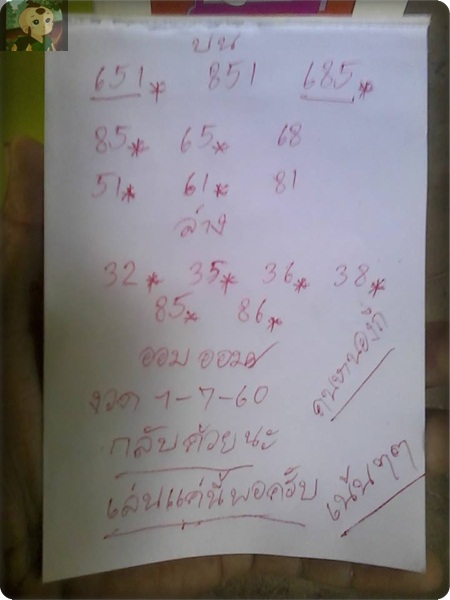 บน
651* 851 685*
85* 65* 68
51* 61* 81
ล่าง
32* 35* 36* 38*
85* 86*
ออม ออม
งวด 1-7-60
กลับด้วยนะ
เล่นแค่นี้พอครับ
เน้นๆๆ